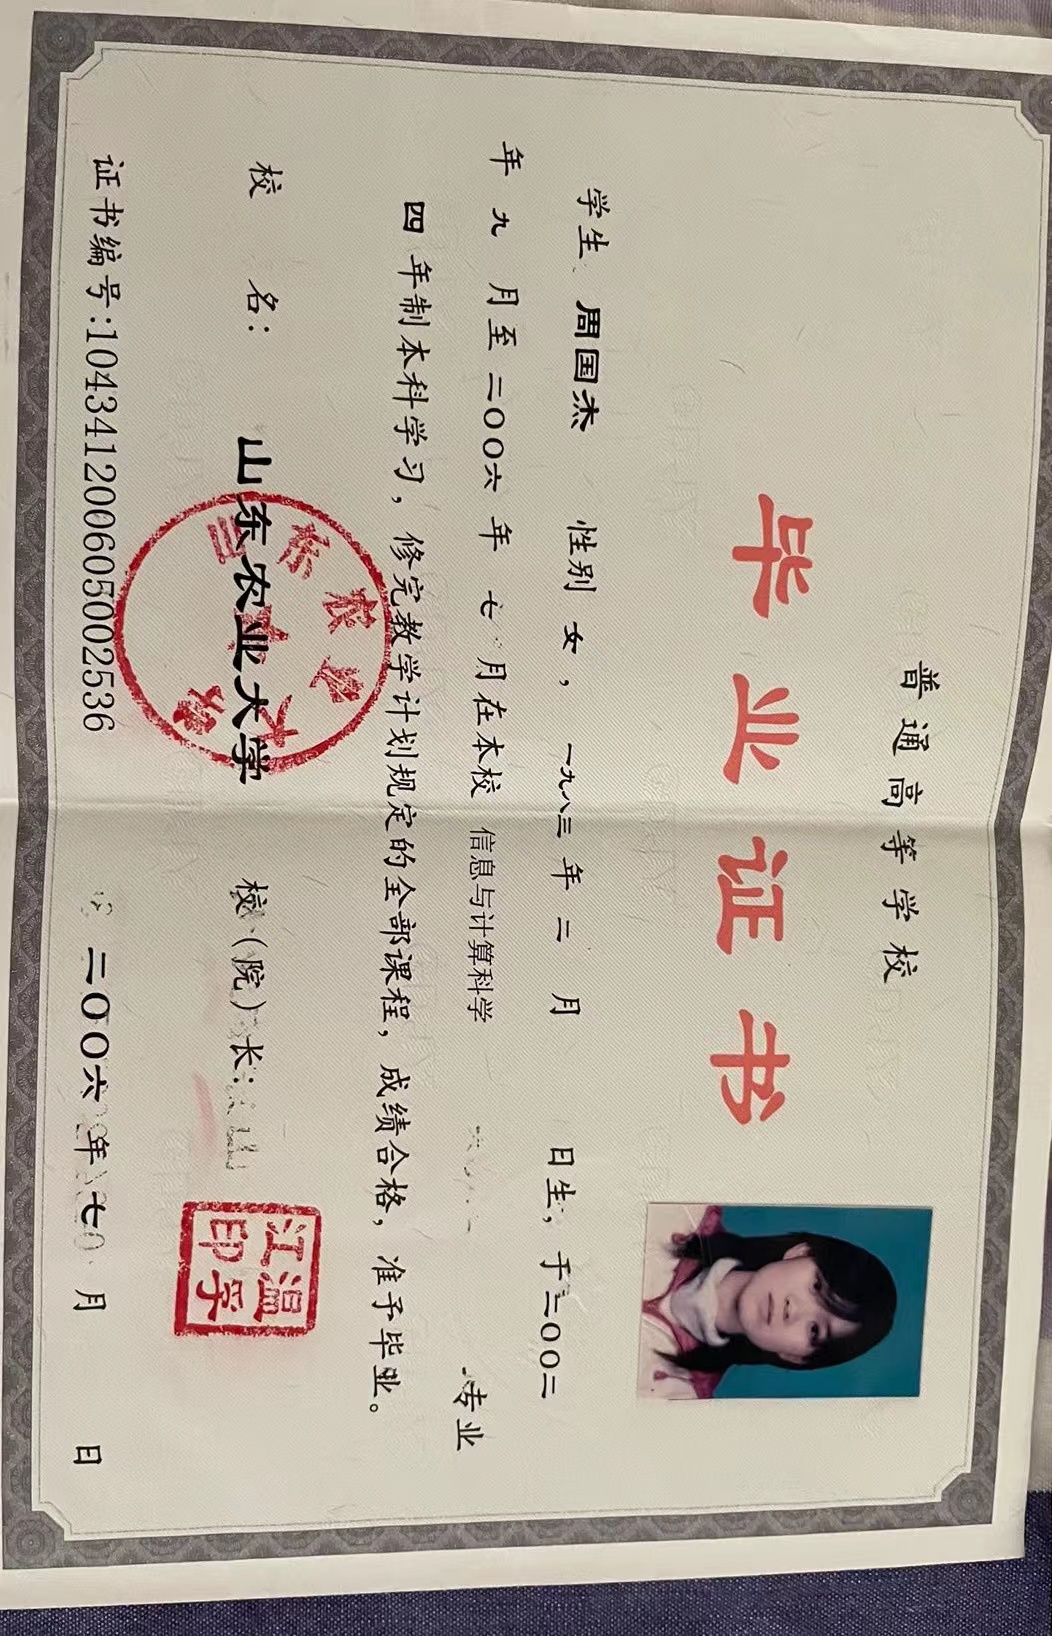 普通高等学校
毕业证书
学生 周国杰 性别 女， 一九八三 年 二 月 日生，于二〇〇二
年 九 月至 二〇〇六 年 七 月在本校 信息与计算科学 专业
四 年制本科学习，修完教学计划规定的全部课程，成绩合格，准予毕业。
校 名： 山东农业大学 校（院）长：
温孚江印
证书编号:104341200605002536 二〇〇六年七 月 日